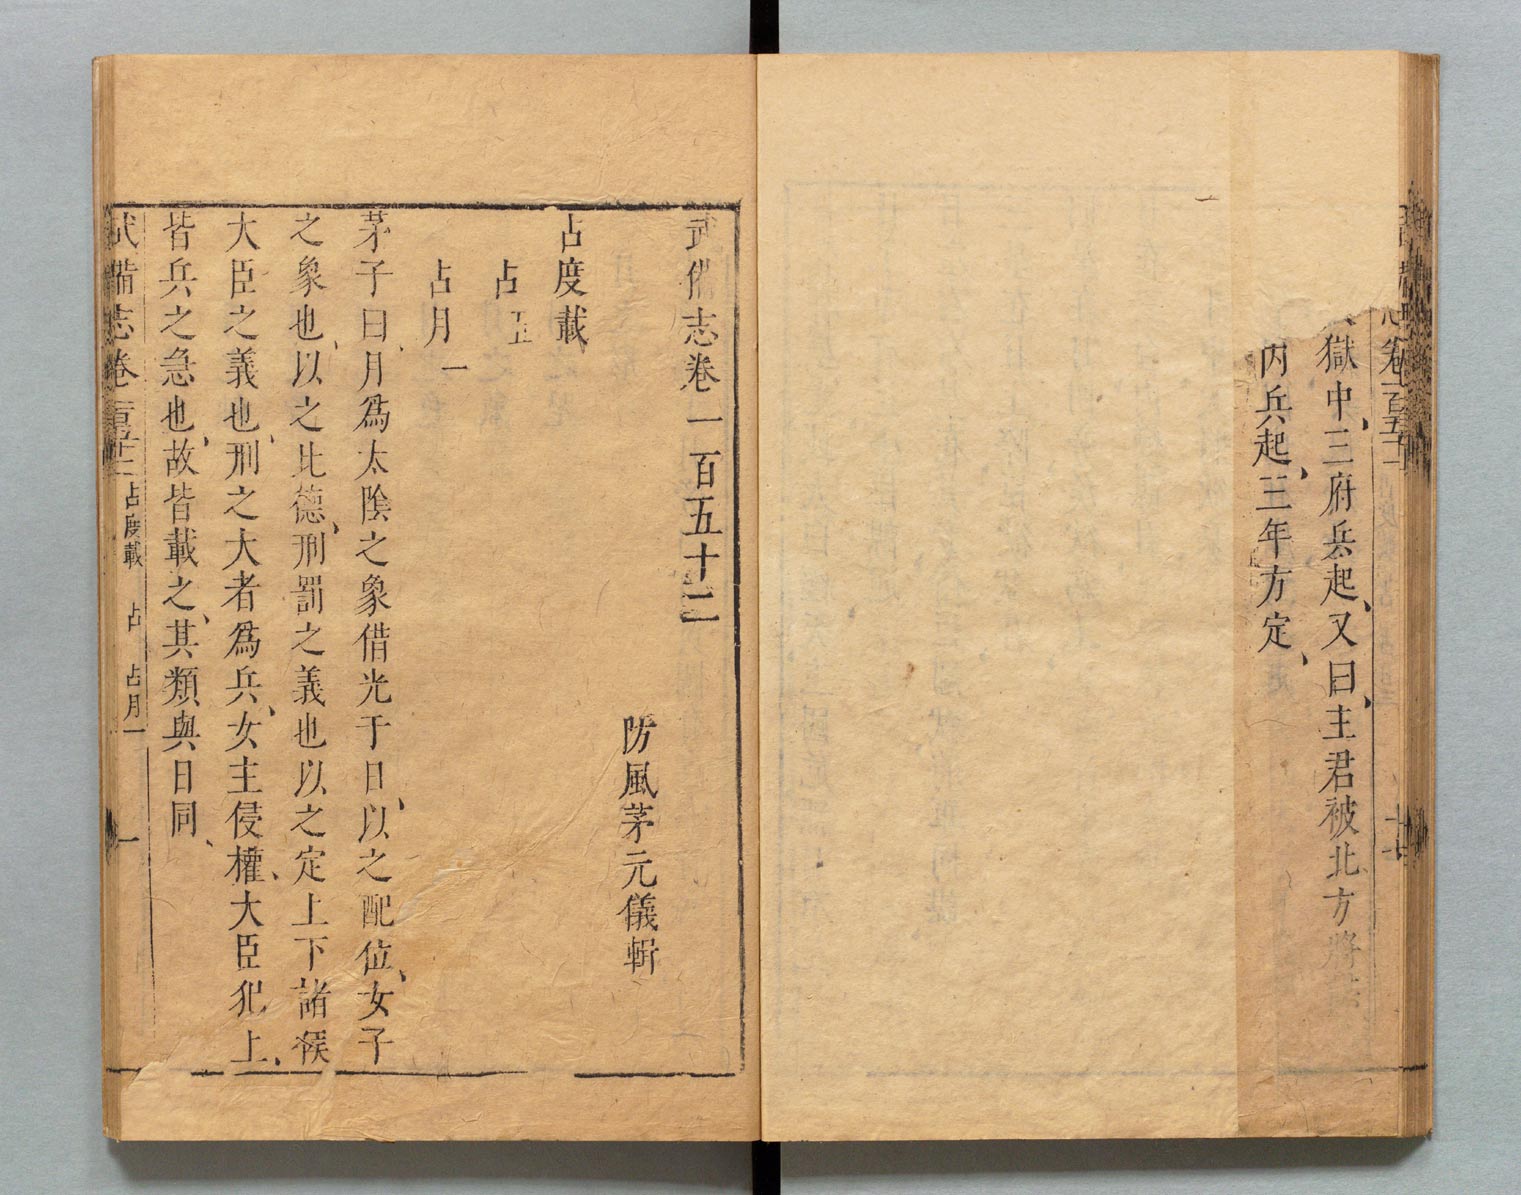 獄中三府兵起、又曰、主君被北方將
内兵起、三年方定、
卷一百五十一
武備志卷一百五十二
防風茅元儀輯
占度載
占
占月一
茅子曰、月爲太陰之象借光于日、以之配位、女子
之象也、以之比德、刑罰之義也以之定上下諸侯
大臣之義也、刑之大者爲兵、女主侵權、大臣犯上、
皆兵之急也、故皆載之、其類與日同、
武備志卷一百五十二 占度載 占 占月一 一